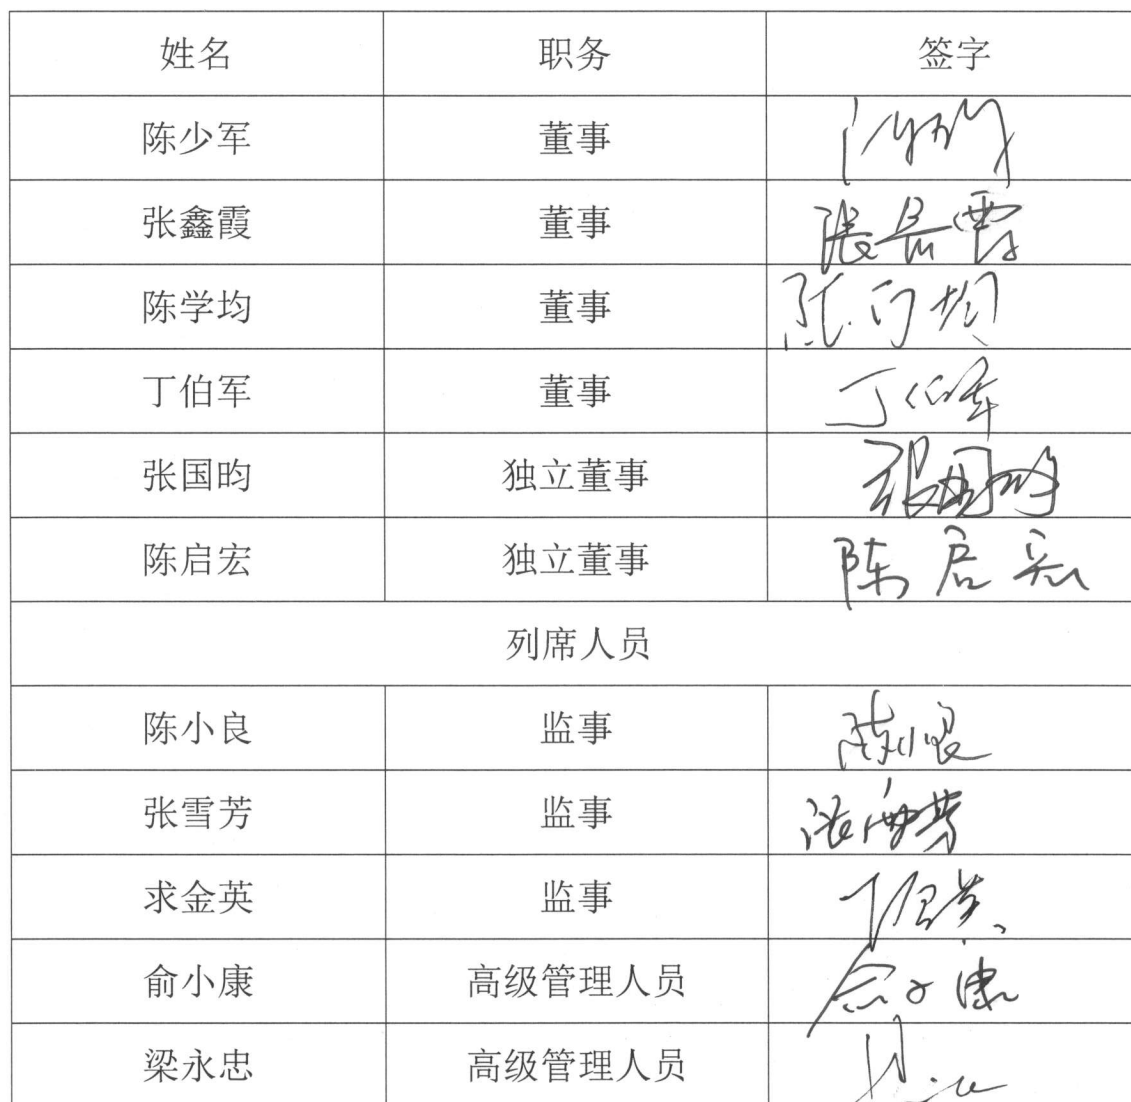 姓名 职务 签字
陈少军 董事
张鑫霞 董事
陈学均 董事
丁伯军 董事 丁伯军
张国昀 独立董事 张国昀
陈启宏 独立董事 陈启宏
列席人员
陈小良 监事 陈小良
张雪芳 监事 张雪芳
求金英 监事
俞小康 高级管理人员 俞小康
梁永忠 高级管理人员